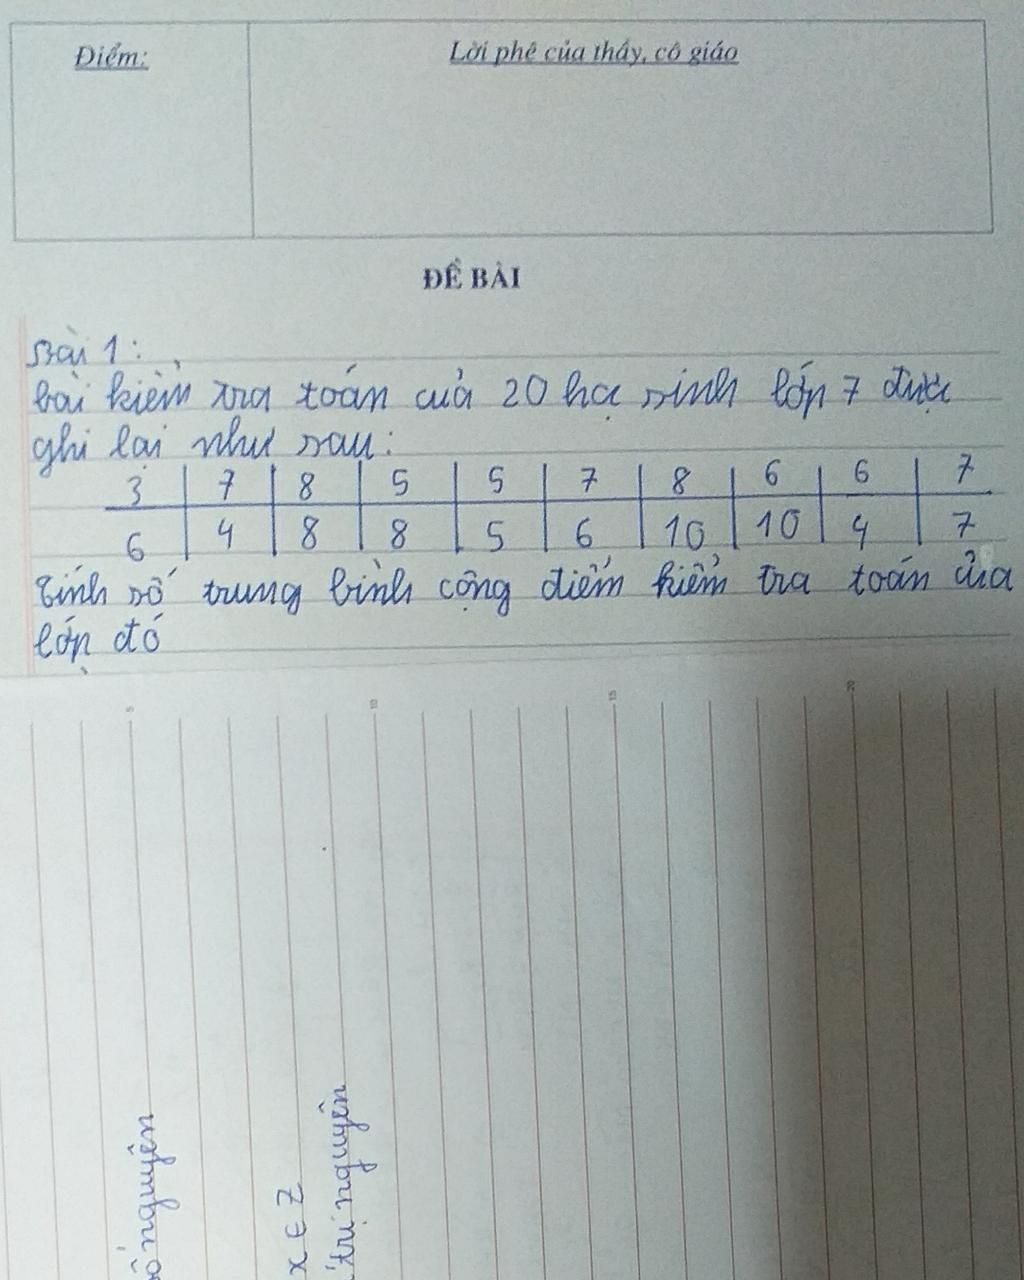 Điểm:
Lời phê của thầy, cô giáo
ĐỀ BÀI
Bài 1:
bài kiểm tra toán của 20 học sinh lớp 7 được
ghi lại như sau:
3 7 8 5 5 7 8 6 6 7
6 4 8 8 5 6 10 10 4 7
Tính số trung bình cộng điểm kiểm tra toán của
lớp đó
5 10 15 20
số nguyên
x ∈ Z
trị nguyên